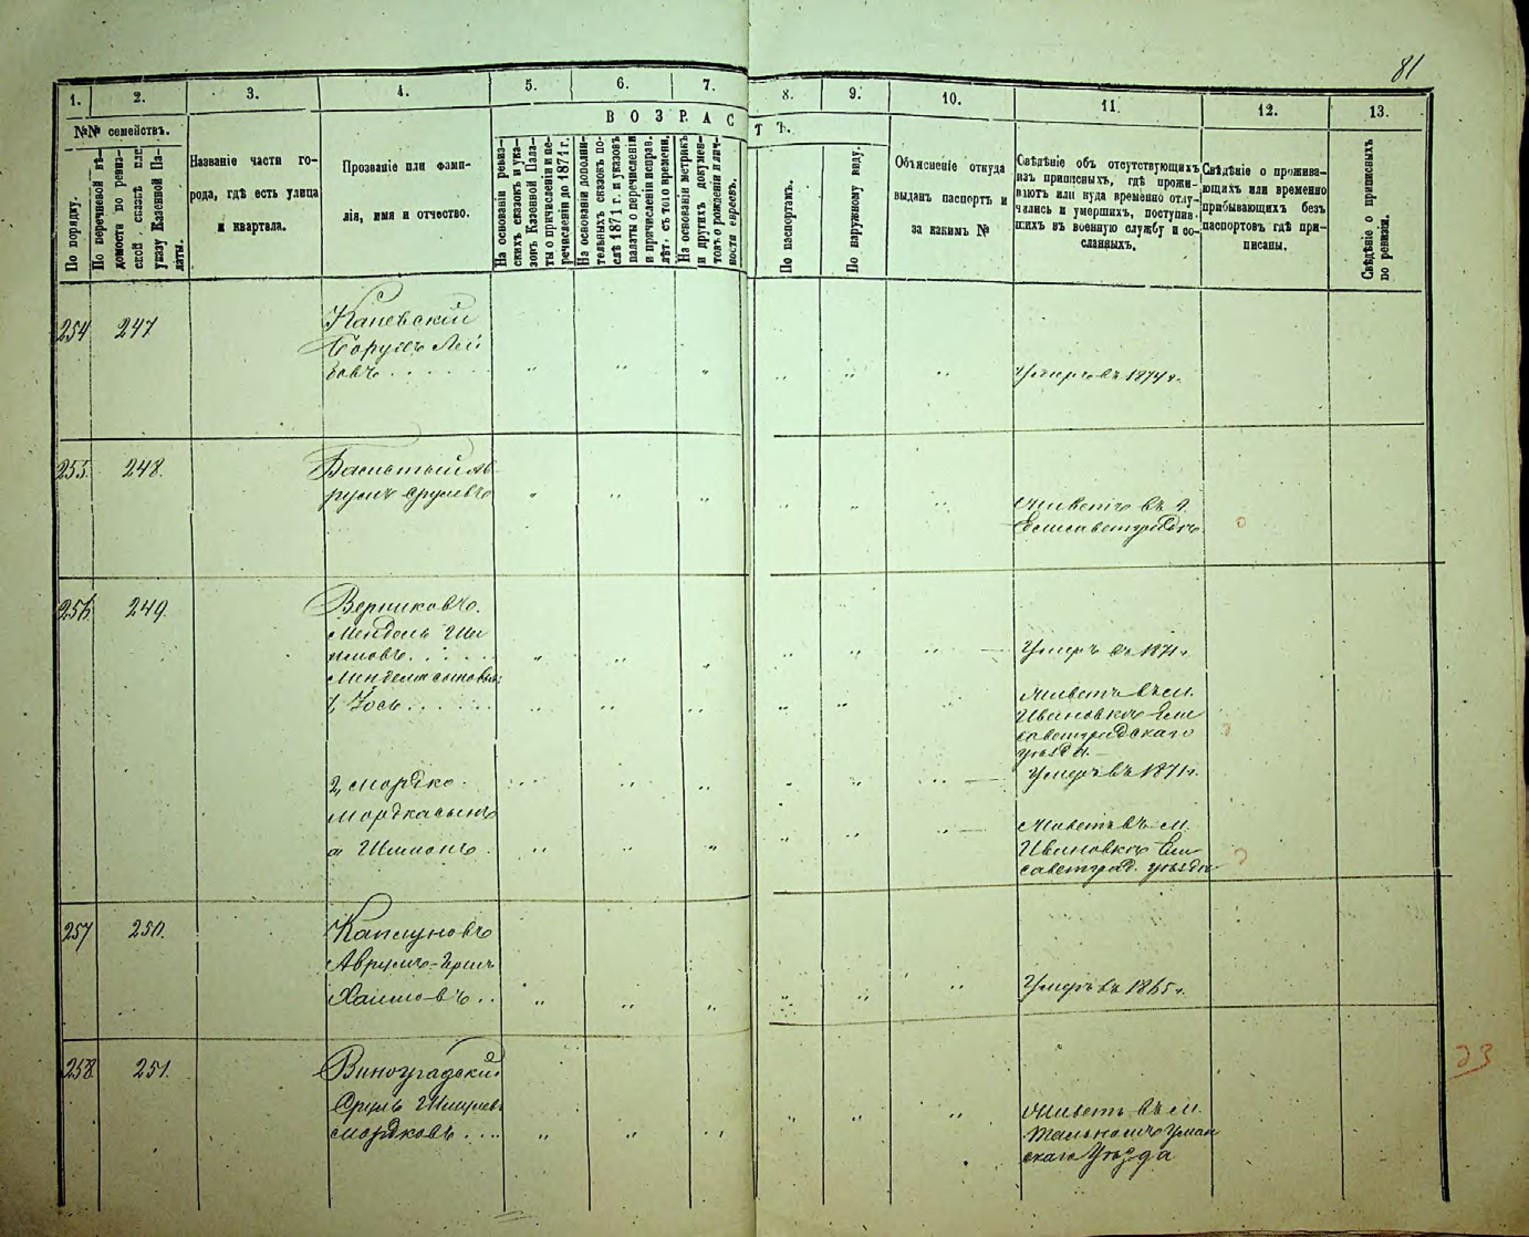 81
1.
2.
3.
4.
5.
6.
7.
8.
9.
10.
11.
12.
13.
№№ семействъ.
ВОЗРАС
ТЪ.
По порядку.
По перечневой вѣ-
домости по ревиз-
ской сказкѣ или
указу Казенной Па-
латы.
Названіе части го-
рода, гдѣ есть улица
и квартала.
Прозваніе или фами-
лія, имя и отчество.
На основаніи ревиз-
скихъ сказокъ и ука-
зовъ Казенной Пала-
ты о причисленіи и пе-
речисленіи до 1871 г.
На основаніи дополни-
тельныхъ сказокъ по-
слѣ 1871 г. и указовъ
палаты о перечисленіи
и причисленіи исправ.
лѣт. съ того времени.
На основаніи метрикъ
и другихъ докумен-
товъ о рожденіи и лич-
ности евреевъ.
По паспортамъ.
По наружному виду.
Объясненіе откуда
выданъ паспортъ и
за какимъ №
Свѣдѣніе объ отсутствующихъ
изъ приписныхъ, гдѣ прожи-
ваютъ или куда временно отлу-
чились и умершихъ, поступив-
шихъ въ военную службу и со-
сланныхъ.
Свѣдѣніе о прожива-
ющихъ или временно
прибывающихъ безъ
паспортовъ гдѣ при-
писаны.
Свѣдѣніе о приписныхъ
по ревизіи.
254 247
Каневскій
Борухъ Лей
бовъ . . . . . .
Умеръ въ 1874 г.
255. 248.
Басистый Ав
румъ Срулевъ
Живетъ въ г.
Елисаветградѣ
256 249.
Верниковъ.
Мендель Ши
моновъ . . . . .
Менделя сыновья:
1, Іось . . . . . .
2, Мордко.
Мордкасынъ
а Шимонъ.
Умеръ въ 1871 г.
Живетъ въ м.
Ивановкѣ Ели
саветградскаго
уѣзда.
Умеръ въ 1871 г.
Живетъ въ м.
Ивановкѣ Ели
саветград. уѣзда
257 250.
Каплуновъ
Аврумъ-Гершъ
Хаимовъ . .
Умеръ въ 1865 г.
258 251.
Виноградскій
Сруль Шмулев
Мордковъ . . . .
Живетъ въ м.
Тальномъ Уман
скаго Уѣзда
23